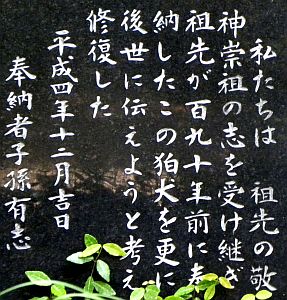 私たちは 祖先の敬
神崇祖の志を受け継ぎ
祖先が百九十年前に奉
納したこの狛犬を更に
後世に伝えようと考え
修復した
平成四年十二月吉日
奉納者子孫有志